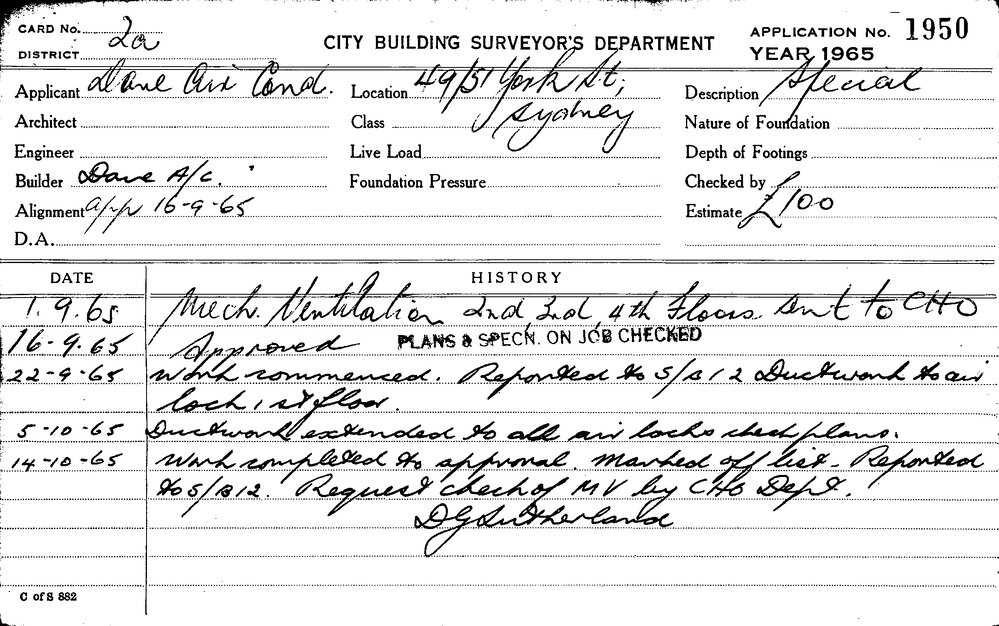 CARD No. 2a
DISTRICT
CITY BUILDING SURVEYOR'S DEPARTMENT
APPLICATION No. 1950
YEAR 1965
Applicant Dave Air Cond. Location 49/51 York St, Description Special
Architect Class Sydney Nature of Foundation
Engineer Live Load Depth of Footings
Builder Dave A/c. Foundation Pressure Checked by
Alignment app 16-9-65 Estimate £100
D.A.
DATE HISTORY
1.9.65 Mech. Ventilation 2nd 3rd 4th Floors. Sent to CHO
16-9-65 Approved PLANS & SPEC'N. ON JOB CHECKED
22-9-65 Work commenced. Reported to S/B12 Ductwork to air
lock 1st floor.
5-10-65 Ductwork extended to all air locks check plans.
14-10-65 Work completed to approval. Marked off list - Reported
to S/B12. Request check of MV by CHO Dept.
DG Sutherland
C of S 882